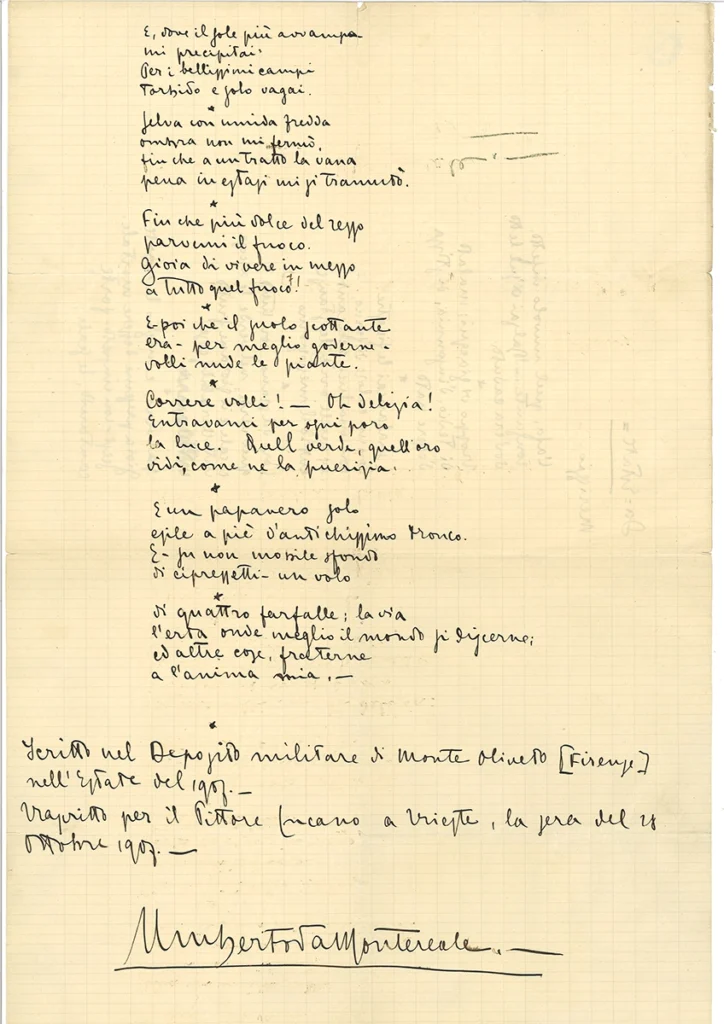 E, dove il sole più avvampa
mi precipitai.
Per i bellissimi campi
torbido e solo vagai.
*
Selva con umida fredda
ombra non mi fermò,
fin che a un tratto la vana
pena in estasi mi si tramutò.
*
Fin che più dolce del rezzo
parvemi il fuoco.
Gioia di vivere in mezzo
a tutto quel fuoco!
*
E poi che il suolo scottante
era - per meglio goderne -
volli nude le piante.
*
Correre volli! — Oh delizia!
Entravami per ogni poro
la luce. Quel verde, quell'oro
vidi, come ne la puerizia.
*
E un papavero solo
esile a piè d'antichissimo tronco.
E - su non mobile sfondo
di cipressetti - un volo
*
di quattro farfalle; la via
l'erta onde meglio il mondo si discerne;
ed altre cose, fraterne
a l'anima mia. —
*
Scritto nel Deposito militare di Monte Oliveto [Firenze]
nell'Estate del 1907. —
Trascritto per il Pittore Lucano a Trieste, la sera del 28
Ottobre 1907. —
Umberto da Montereale. —